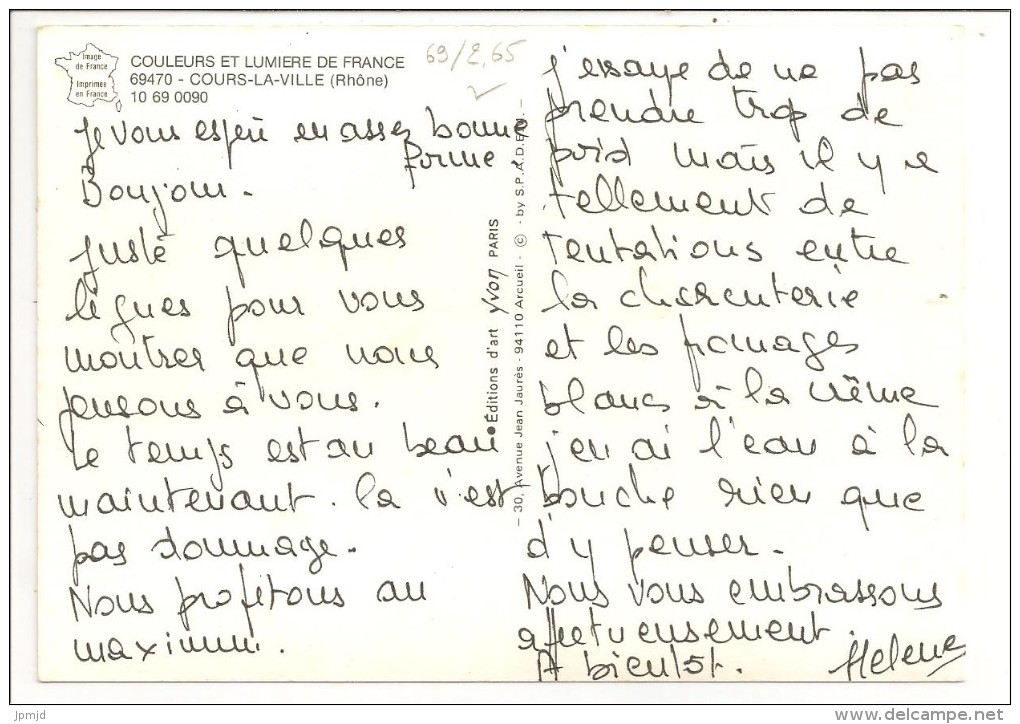 Image
de France
Imprimés
en France
COULEURS ET LUMIERE DE FRANCE
69470 - COURS-LA-VILLE (Rhône)
10 69 0090
69/2,65
Je vous espère en assez bonne
forme
Bonjour.
juste quelques
lignes pour vous
montrer que nous
pensons à vous.
Le temps est au beau
maintenant. la c'est
pas dommage.
Nous profitons au
maximum.
● Éditions d'art yvon PARIS
— 30, Avenue Jean Jaurès - 94110 Arcueil - © - by S.P.A.D.E.M. —
j'essaye de ne pas
prendre trop de
poid mais il y a
tellement de
tentations entre
la charcuterie
et les fromages
blancs à la crême
j'en ai l'eau à la
bouche rien que
d'y penser.
Nous vous embrassons
affectueusement.
A bientôt. Helene
jpmjd
delcampe.net